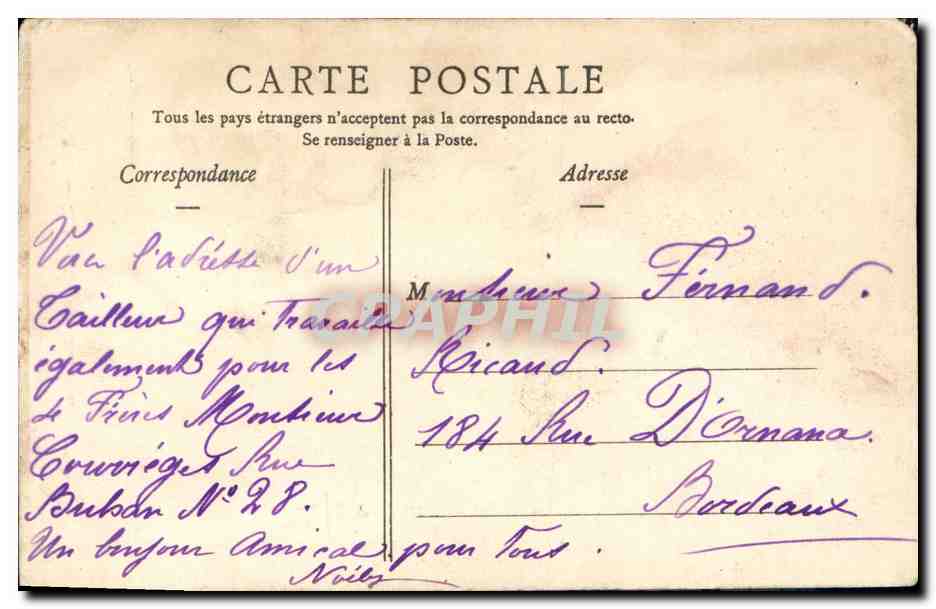 CARTE POSTALE
Tous les pays étrangers n'acceptent pas la correspondance au recto.
Se renseigner à la Poste.
Correspondance
Adresse
l'adrésse d'un
Tailleur qui Travaille
également pour les
de Frères Monsieur
Rue
N° 28.
Un bonjour Amical pour Tous.
Monsieur Férnand.
Ricaud.
184 Rue D'Ornana.
Bordeaux
CPAPHIL